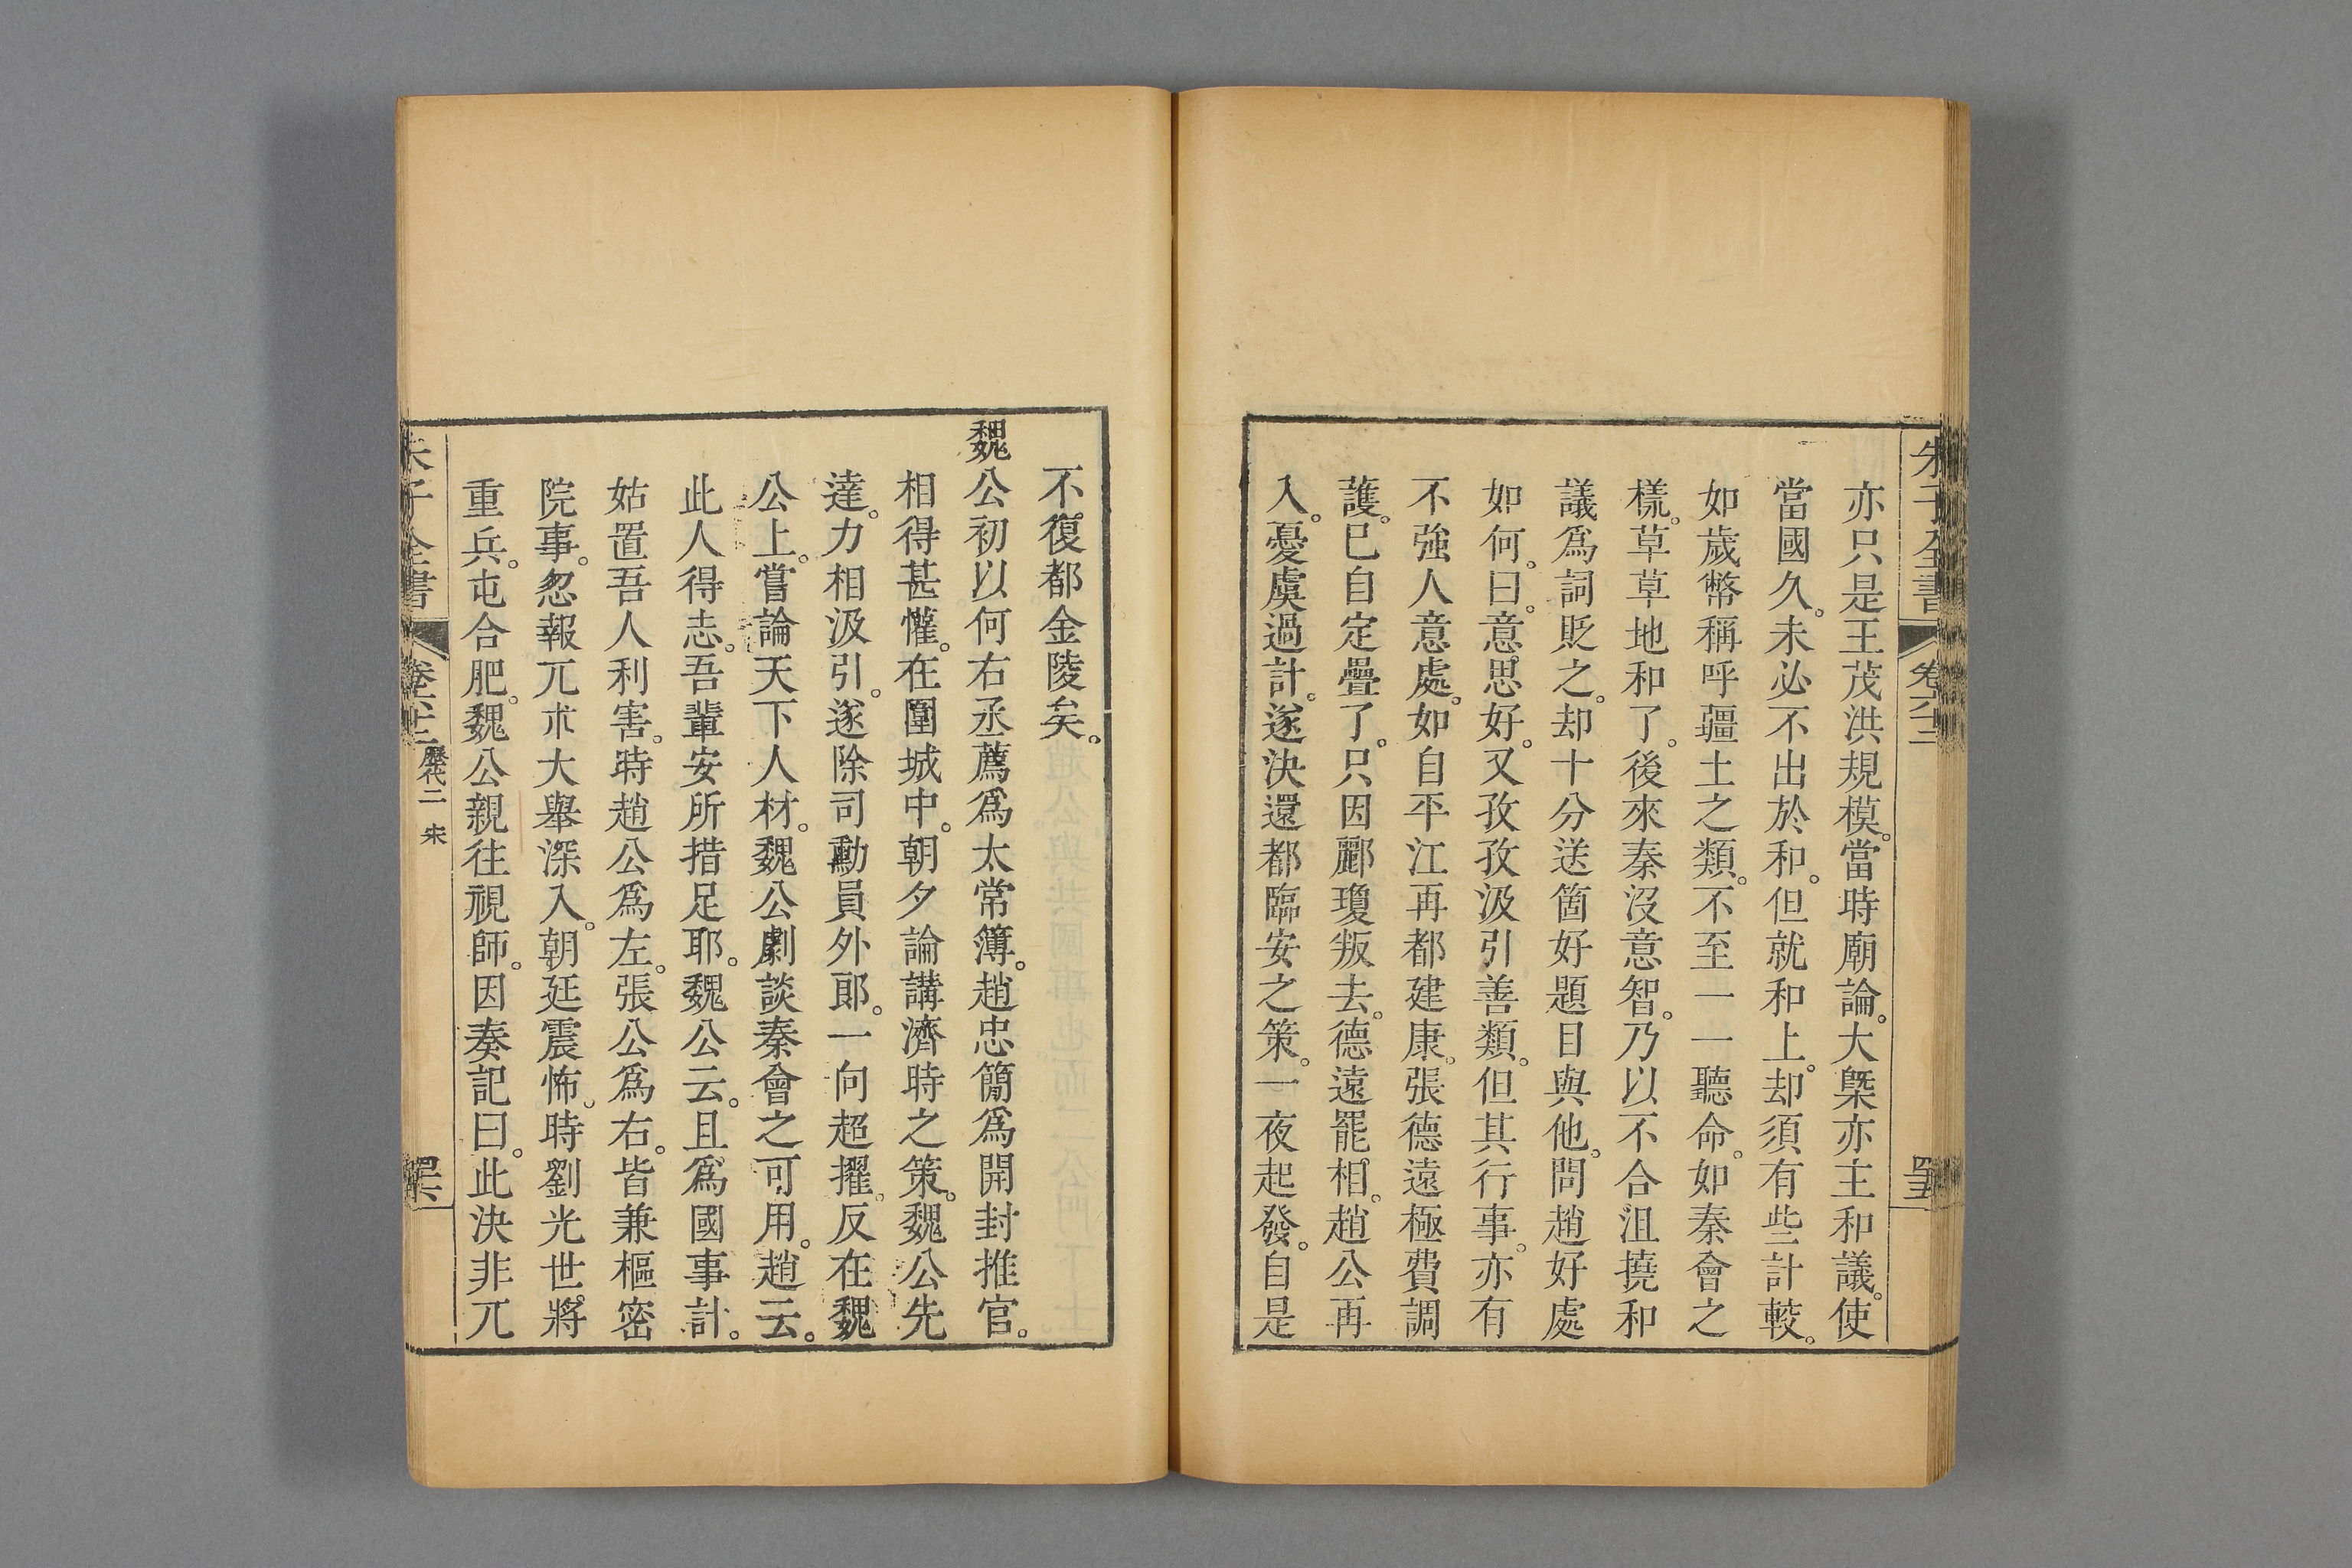 亦只是王茂洪規模。當時廟論。大槩亦主和議。使
當國久。未必不出於和。但就和上。却須有些計較。
如歲幣稱呼疆土之類。不至一一聽命。如秦會之
樣。草草地和了。後來秦沒意智。乃以不合沮撓和
議爲詞貶之。却十分送箇好題目與他。問趙好處
如何。曰。意思好。又孜孜汲引善類。但其行事。亦有
不強人意處。如自平江再都建康。張德遠極費調
護。已自定疊了。只因酈瓊叛去。德遠罷相。趙公再
入。憂虞過計。遂決還都臨安之策。一夜起發。自是
不復都金陵矣。
魏公初以何右丞薦爲太常簿。趙忠簡爲開封推官。
相得甚懽。在圍城中。朝夕論講濟時之策。魏公先
達。力相汲引。遂除司勳員外郎。一向超擢。反在魏
公上。嘗論天下人材。魏公劇談秦會之可用。趙云。
此人得志。吾輩安所措足耶。魏公云。且爲國事計。
姑置吾人利害。時趙公爲左。張公爲右。皆兼樞密
院事。忽報兀朮大舉深入。朝廷震怖。時劉光世將
重兵。屯合肥。魏公親往視師。因奏記曰。此決非兀
歷代二 宋